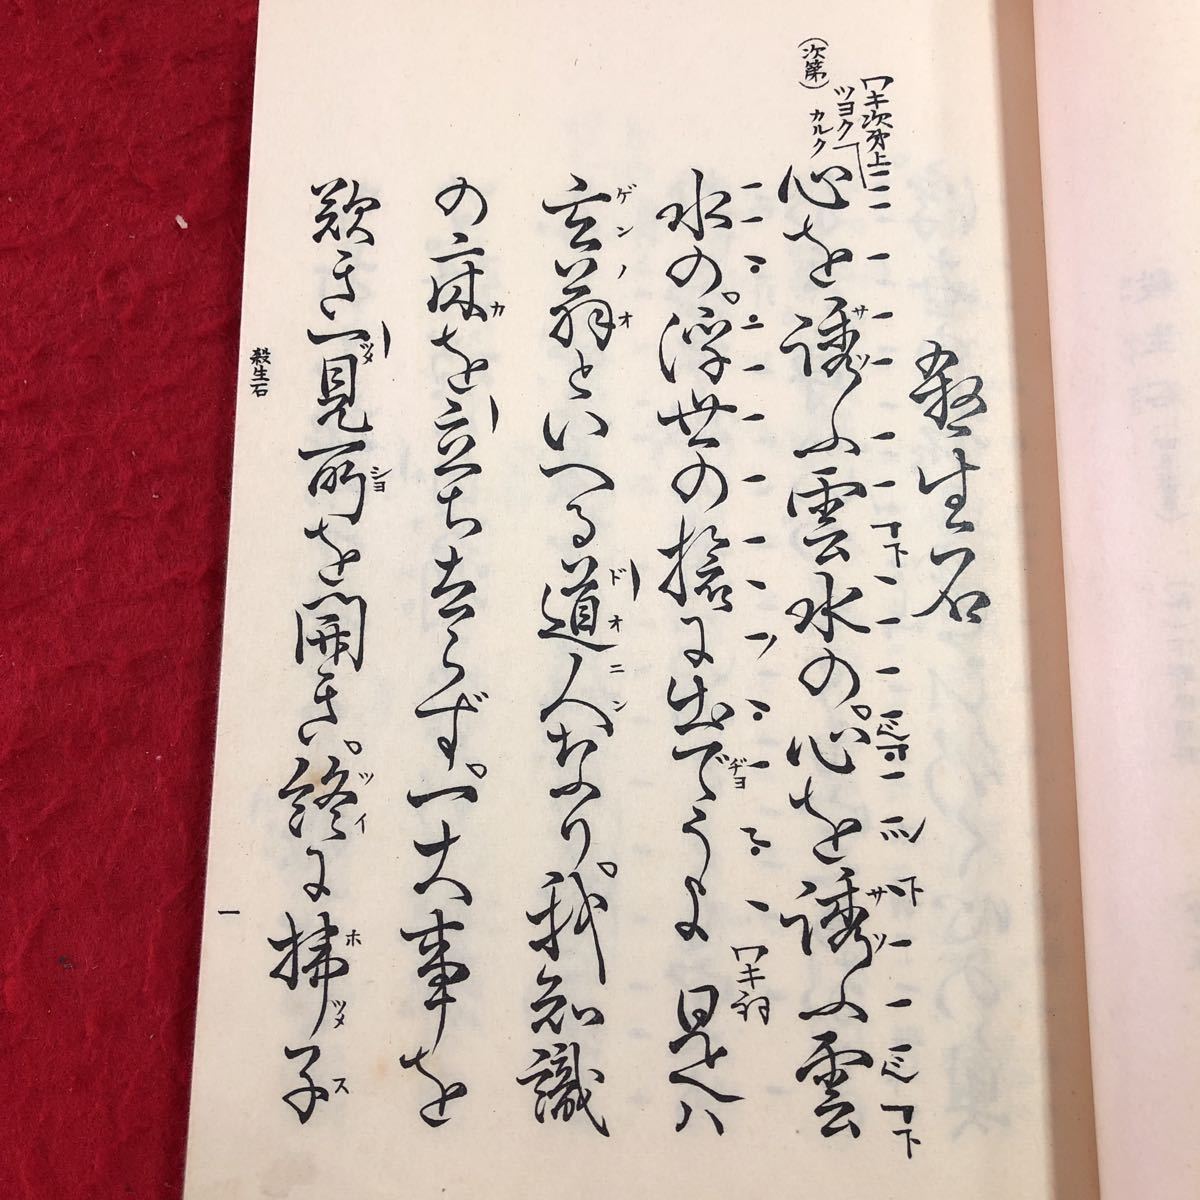 殺生石
ワキ次第上
ツヨク
(次第) カルク
心を誘ふ雲水の。心を誘ふ雲
水の。浮世の旅に出でうよ ワキ詞 是ハ
玄翁といへる道人なり。我知識
の床を立ち去らず。一大事を
歎き一見所を開き。終に拂子
殺生石
一